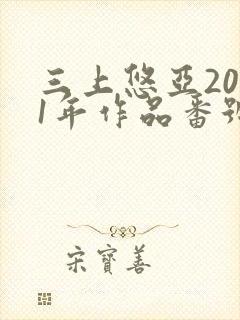 三上悠亞20
1年作品番號
宋寶善